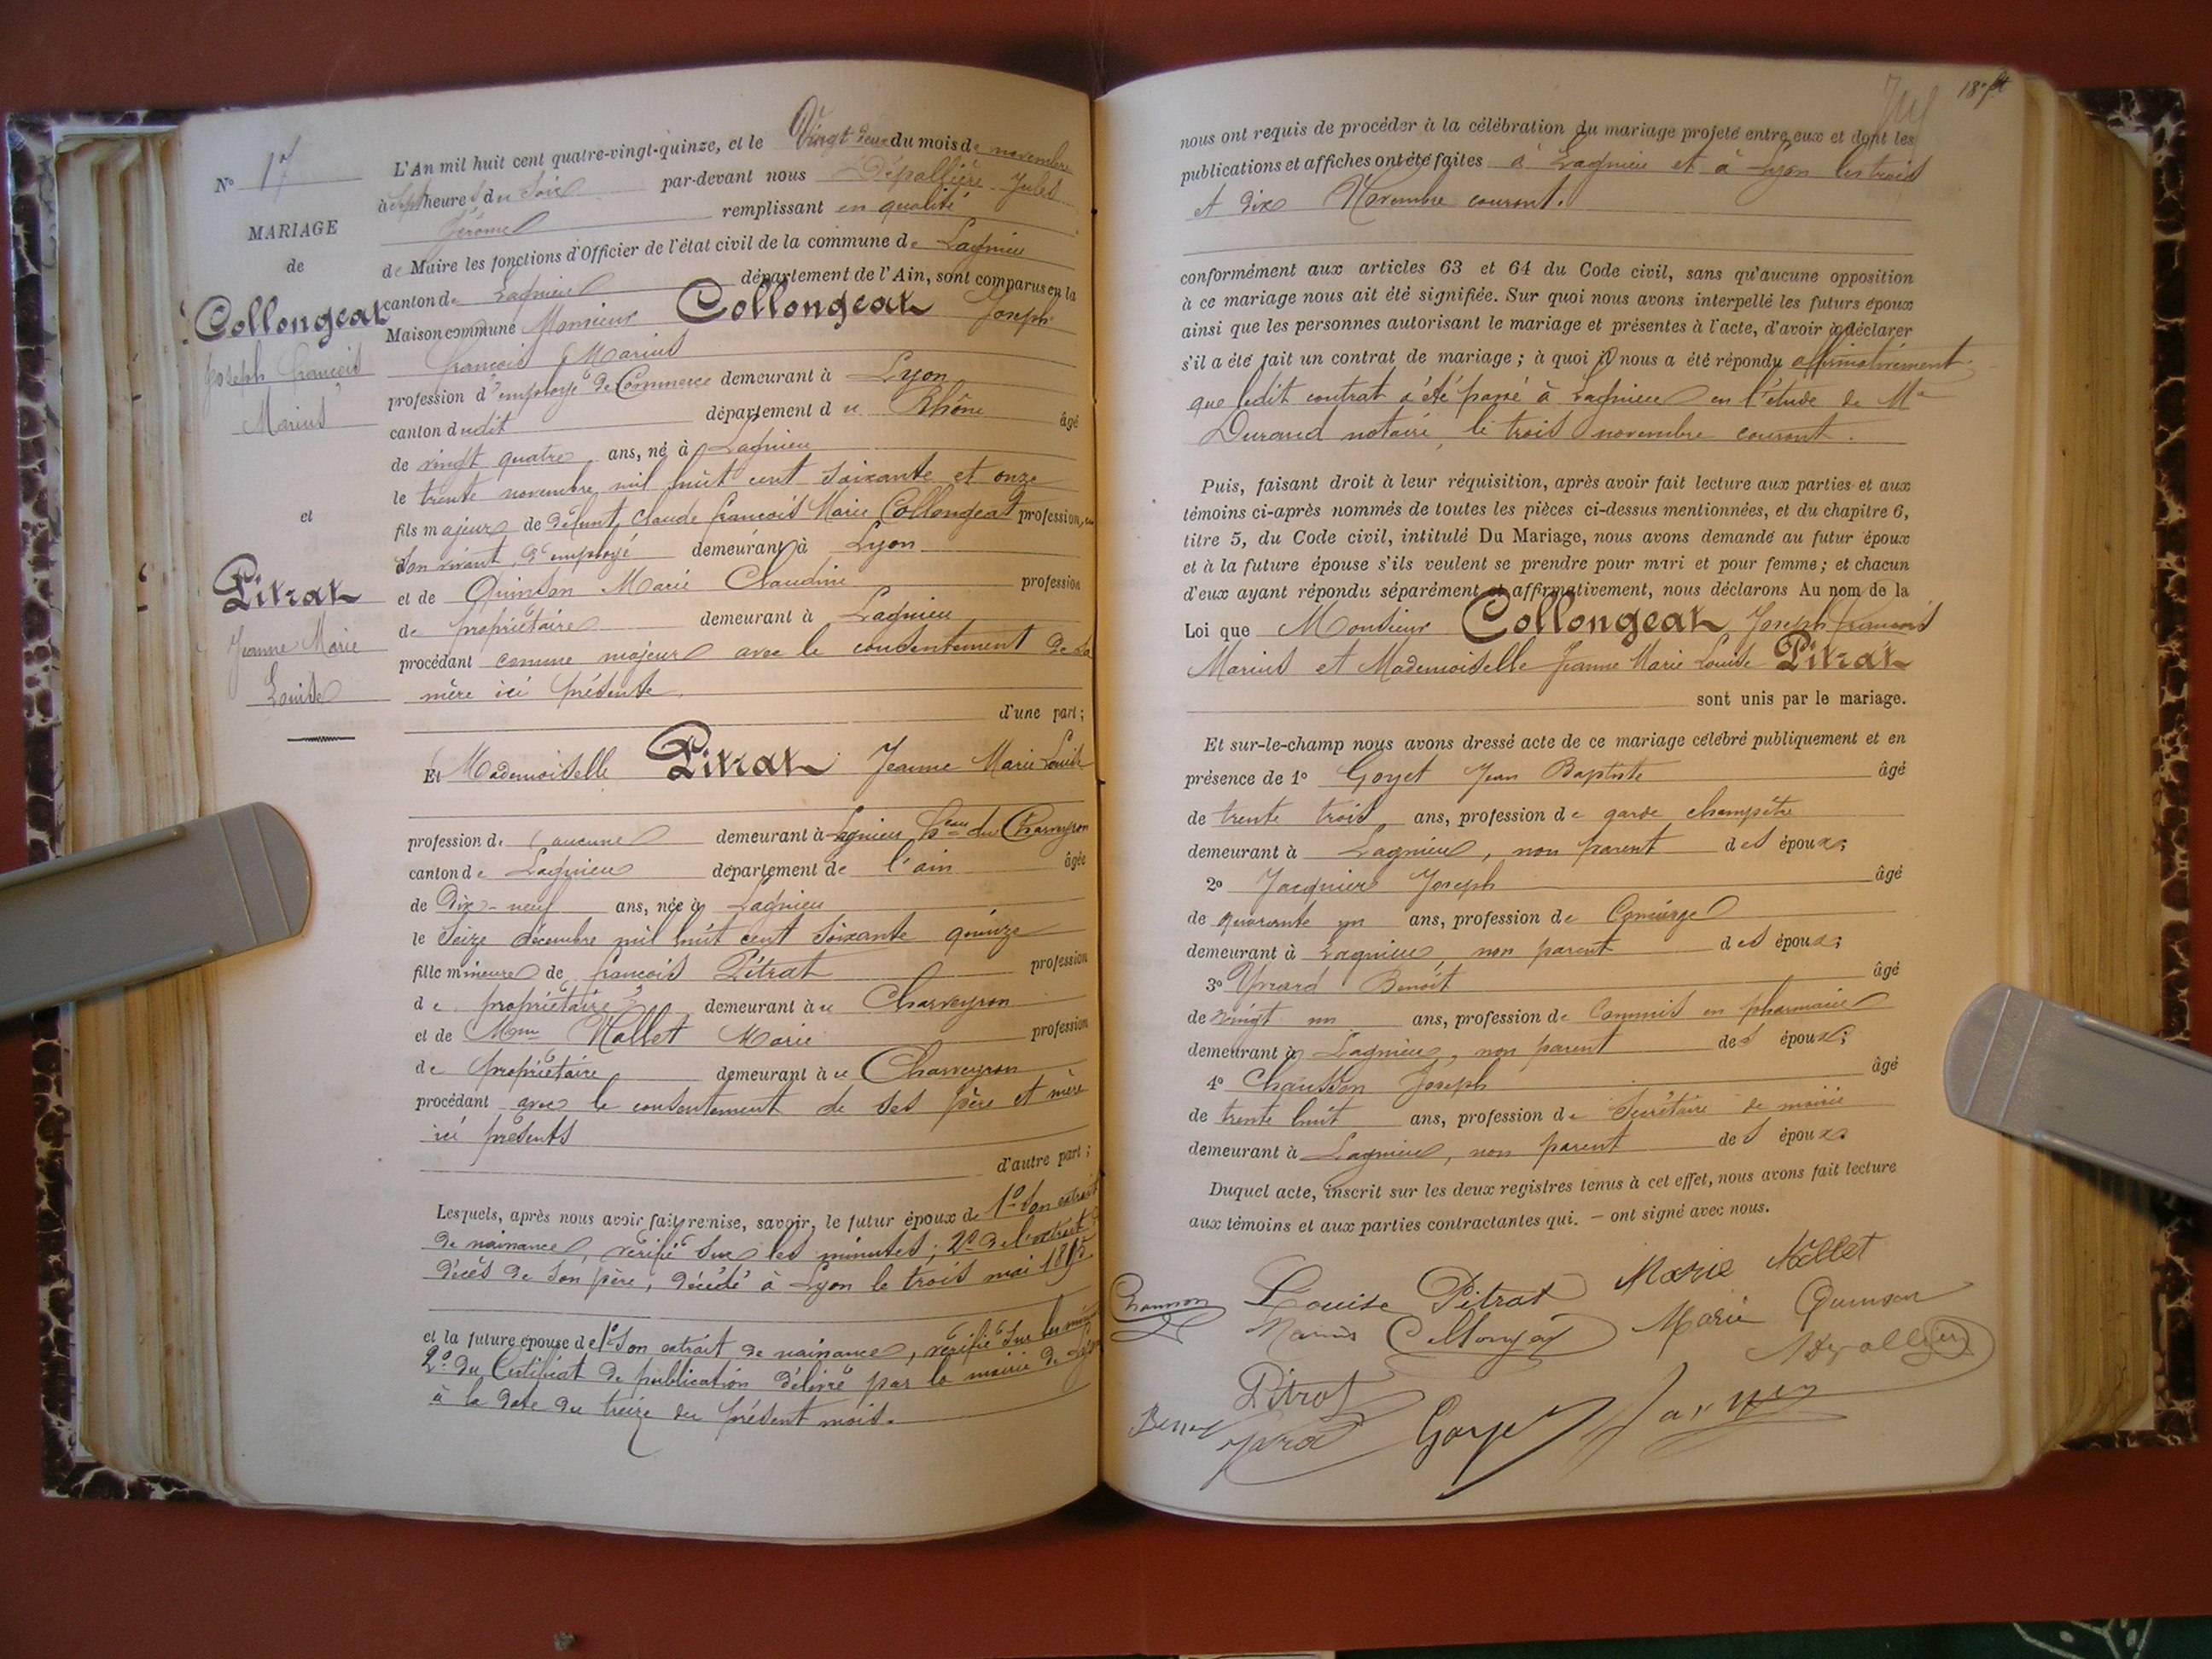 N° 17
MARIAGE
de
Collongeat
Joseph François
Marius
et
Pitrat
Jeanne Marie
Louise
L'An mil huit cent quatre-vingt-quinze, et le Vingt deux du mois de novembre
à sept heures du soir par-devant nous Dépallière Jules
Jérôme remplissant en qualité
de Maire les fonctions d'Officier de l'état civil de la commune de Lagnieu
canton de Lagnieu département de l'Ain, sont comparus en la
Maison commune Monsieur Collongeat Joseph
François Marius
profession d'employé de Commerce demeurant à Lyon
canton dudit département du Rhône âgé
de vingt quatre ans, né à Lagnieu
le trente novembre mil huit cent soixante et onze
fils majeur de défunt Claude François Marie Collongeat profession, en
son vivant, d'employé demeurant à Lyon
et de Quinson Marie Claudine profession
de propriétaire demeurant à Lagnieu
procédant comme majeur avec le consentement de sa
mère ici présente.
d'une part;
Et Mademoiselle Pitrat Jeanne Marie Louise
profession d aucune demeurant à Lagnieu, heau du Charveyron
canton de Lagnieu département de l'ain âgée
de Dix-neuf ans, née à Lagnieu
le Seize décembre mil huit cent soixante quinze
fille mineure de François Pitrat profession
de propriétaire demeurant au Charveyron
et de Mme Mallet Marie profession
de propriétaire demeurant au Charveyron
procédant avec le consentement de ses père et mère
ici présents
d'autre part;
Lesquels, après nous avoir fait remise, savoir, le futur époux de 1° son extrait
de naissance, vérifié sur les minutes; 2° de l'extrait de
décès de son père, décédé à Lyon le trois mai
et la future épouse de 1° Son extrait de naissance, vérifié sur les minutes
2° du Certificat de publication délivré par la mairie de Lyon
à la date du treize du présent mois.
nous ont requis de procéder à la célébration du mariage projeté entre eux et dont les
publications et affiches ont été faites à Lagnieu et à Lyon les trois
et dix Novembre courant.
conformément aux articles 63 et 64 du Code civil, sans qu'aucune opposition
à ce mariage nous ait été signifiée. Sur quoi nous avons interpellé les futurs époux
ainsi que les personnes autorisant le mariage et présentes à l'acte, d'avoir à déclarer
s'il a été fait un contrat de mariage; à quoi il nous a été répondu affirmativement
que ledit contrat a été passé à Lagnieu en l'étude de Me
Durand notaire, le trois novembre courant.
Puis, faisant droit à leur réquisition, après avoir fait lecture aux parties et aux
témoins ci-après nommés de toutes les pièces ci-dessus mentionnées, et du chapitre 6,
titre 5, du Code civil, intitulé Du Mariage, nous avons demandé au futur époux
et à la future épouse s'ils veulent se prendre pour mari et pour femme; et chacun
d'eux ayant répondu séparément et affirmativement, nous déclarons Au nom de la
Loi que Monsieur Collongeat Joseph François
Marius et Mademoiselle Jeanne Marie Louise Pitrat
sont unis par le mariage.
Et sur-le-champ nous avons dressé acte de ce mariage célébré publiquement et en
présence de 1° Goyet Jean Baptiste âgé
de trente trois ans, profession de garde champêtre
demeurant à Lagnieu, non parent des époux;
2° Jacquier Joseph âgé
de quarante un ans, profession de Concierge
demeurant à Lagnieu, non parent des époux;
3° Yvrard Benoît âgé
de vingt un ans, profession de Commis en pharmacie
demeurant à Lagnieu, non parent des époux;
4° Chausson Joseph âgé
de trente huit ans, profession de Secrétaire de mairie
demeurant à Lagnieu, non parent des époux.
Duquel acte, inscrit sur les deux registres tenus à cet effet, nous avons fait lecture
aux témoins et aux parties contractantes qui. — ont signé avec nous.
Chausson Louise Pitrat Marie Mallet
Marius Collongeat Marie Quinson
Pitrat
Goyet